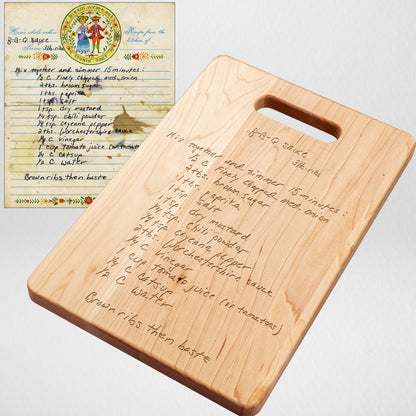 Here's what's cookin'
Recipe from the kitchen of
B-B-Q Sauce
Serves 3 lb. ribs
Mix together and simmer 15 minutes:
½ C Finely chopped med. onion
2 tbs. brown sugar
1 tsp. paprika
1 tsp. salt
1 tsp. dry mustard
¼ tsp. chili powder
⅛ tsp. cayenne pepper
2 tbs. Worchestershire sauce
¼ C vinegar
1 cup tomato juice (or tomatoes)
¼ C catsup
½ C water
Brown ribs then baste
B-B-Q Sauce
3 lb. ribs
Mix together and simmer 15 minutes:
½ C Finely chopped med. onion
2 tbs. brown sugar
1 tsp. paprika
1 tsp. salt
1 tsp. dry mustard
¼ tsp. chili powder
⅛ tsp. cayenne pepper
2 tbs. Worchestershire sauce
¼ C vinegar
1 cup tomato juice (or tomatoes)
¼ C catsup
½ C water
Brown ribs then baste